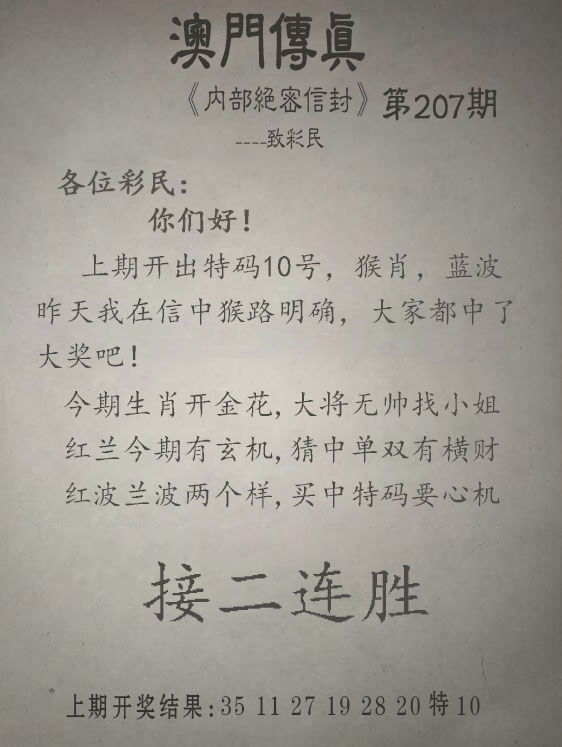 澳門傳真
《内部絕密信封》第207期
----致彩民
各位彩民:
你们好!
上期开出特码10号，猴肖，蓝波
昨天我在信中猴路明确，大家都中了
大奖吧!
今期生肖开金花,大将无帅找小姐
红兰今期有玄机,猜中单双有横财
红波兰波两个样,买中特码要心机
接二连胜
上期开奖结果:35 11 27 19 28 20 特 10